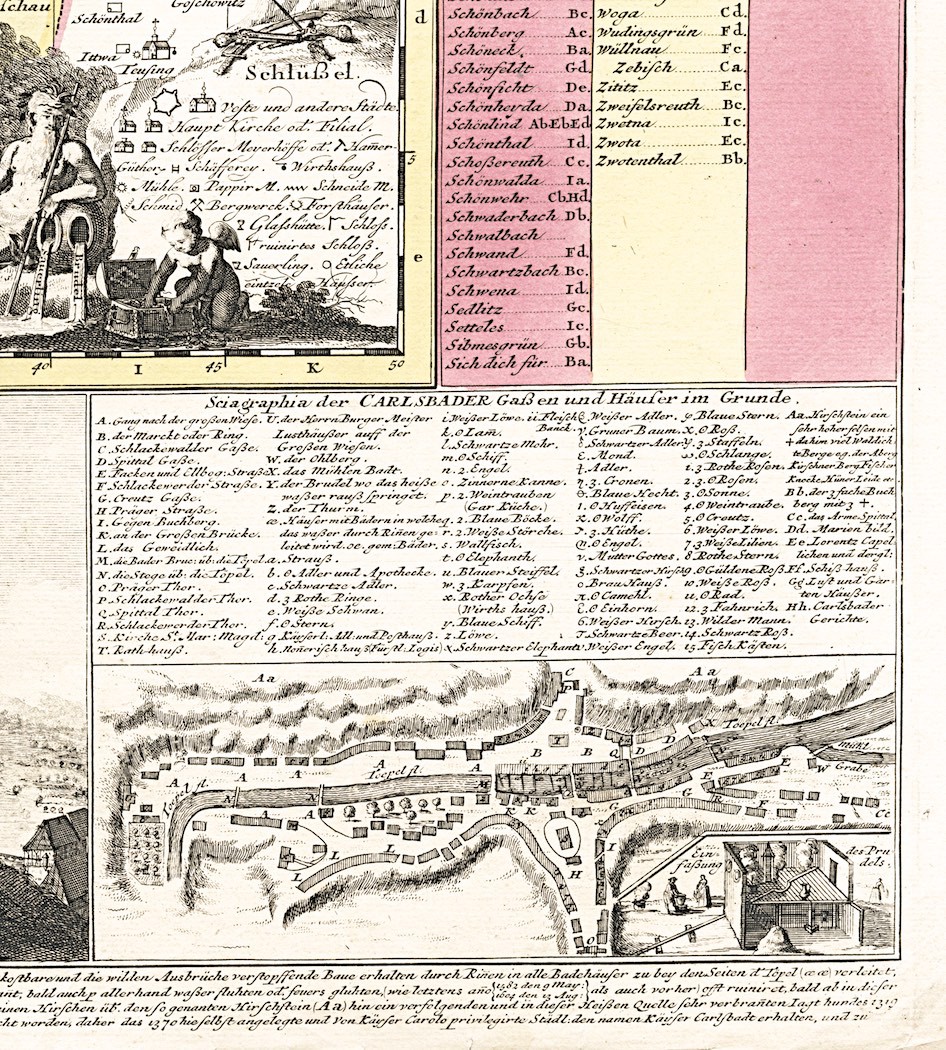 schau
Schönthal
Goschowitz
Ittwa
Teusing
Schlüßel.
Veste und andere Städte.
Haupt Kirche od. Filial.
Schlosser Meyerhöffe od. Hamer
Güther. Schäfferey. Wirthshauß.
Mühle. Pappir M. Schneide M.
Schmid. Bergwerck. Forsthäuser.
Glaßhütte. Schloß.
ruinirtes Schloß.
Sauerling. Etliche
eintzele Häuser.
d
5
e
40
I
45
K
50
Schönbach Bc.
Schönberg Ac.
Schöneck Ba.
Schönfeldt Gd.
Schönficht De.
Schönheyda Da.
Schönlind AbEbEd
Schönthal Id.
Schoßereuth Cc.
Schönwalda Ia.
Schönwehr CbHd.
Schwaderbach Db.
Schwalbach
Schwand Fd.
Schwartzbach Bc.
Schwena Id.
Sedlitz Gc.
Setteles Ic.
Sibmesgrün Gb.
Sich dich für Ba.
Woga Cd.
Wudingsgrün Fd.
Wüllnau Fc.
Zebisch Ca.
Zititz Ec.
Zweifelsreuth Bc.
Zwotna Ic.
Zwota Ec.
Zwotenthal Bb.
Sciagraphia der CARLSBADER Gaßen und Häuser im Grunde.
A. Gang nach der großen Wiese.
B. der Marckt oder Ring.
C. Schlackewalder Gaße.
D. Spittal Gaße.
E. Facken und Ellbog: Straße
F. Schlackewerder Straße.
G. Creutz Gaße.
H. Präger Straße.
I. Gegen Buchberg.
K. an der Großen Brücke.
L. das Geweidlich.
M. die Bader Bruc: üb: die Töpel
N. die Stege üb: die Töpel.
O. Präger Thor.
P. Schlackewalder Thor.
Q. Spittal Thor.
R. Schlackewerder Thor.
S. Kirche St. Mar: Magd:
T. Rath-hauß.
U. der Herrn Burger Meister
Lusthäußer auff der
Großen Wiesen.
W. der Ohlberg.
X. das Mühlen Badt.
Y. der Brudel wo das heiße
waßer rauß springet.
Z. der Thurm.
æ. Häuser mit Bädern in welche
das waßer durch Riñen ge:
leitet wird. œ. gem. Bäder.
a. Strauß.
b. Adler und Apothecke.
c. Schwartze Adler.
d. 3 Rothe Ringe.
e. Weiße Schwan.
f. Stern.
g. Käyserl: All: und Posthauß.
i. Weißer Löwe. ii. Fleisch
Bänck.
k. Lam.
l. Schwartze Mohr.
m. Schiff.
n. 2. Engel.
o. Zinnerne Kanne.
p. 2. Weintrauben
(Gar Küche.)
q. 2. Blaue Böcke.
r. 2. Weiße Störche.
s. Wallfisch.
t. Elephanth.
u. Blauer Steiffel.
w. 3. Karpfen.
x. Rother Ochse
(Wirths hauß.)
y. Blaue Schiff.
z. Löwe.
Schwartzer Elephant
Weißer Adler.
Gruner Baum.
Schwartzer Adler
Mond.
Adler.
3. Cronen.
Blaue Hecht.
Huffeisen.
Wolff.
3. Hüthe.
Engel.
Mutter Gottes.
Schwartzer Hirsch
Brau Hauß.
Camehl.
Einhorn.
Weißer Hirsch.
Schwartze Beer.
Weißer Engel.
Blaue Stern.
Roß.
3. Staffeln.
Schlange.
1. 3 Rothe Rosen.
2. 3. Rosen.
3. Sonne.
4. Weintraube.
5. Creutz.
6. Weißer Löwe.
7. 3. Weiße Lilien.
8. Rothe Stern.
9. Güldene Roß.
10. Weiße Roß.
11. Rad.
12. 3 Fahnrich.
13. Wilder Mann.
14. Schwartz Roß.
15. Fisch Kästen.
Aa. Hirschstein ein
sehr hoher felsen mit
dahim viel Waldich
te Berge
B b. der 3 fache Buch
berg mit 3 +.
Cc. das Arme Spittal.
Dd. Marien bild.
Ee. Lorentz Capel
lichen und dergl:
Ff. Schiß hauß.
Gg. Lust und Gär
ten Häußer.
Hh. Carlsbader
Gerichte.
Aa
Aa
C
P
Toepel fl.
Toepel fl.
Mühl
W Grabe
A
B
B
Q
D
D
X
E
E
F
G
G
R
K K
M
L
L
H
I
O
Cc
Ein
faßung
des Pru
dels.
kostbare und die wilden Ausbrüche verstopffende Baue erhalten durch Riñen in alle Badehäuser zu bey den Seiten d' Töpel (œ æ) verleitet,
ant, bald auch p allerhand waßer fluhten od. feuers gluhten, (wie letztens año 1582 den 9 May: 1604 den 13 Aug: als auch vorher) offt ruiniret, bald ab in dieser
inen Hirschen üb. den so genanten Hirschstein (Aa) hin ein verfolgenden und in dieser Heißen Quelle sehr verbrañten Iagt hundes 1319
cht worden, daher das 1370 hieselbst angelegte und Von Käyser Carolo privilegirte Städl: den namen Käyser Carlsbadt erhalten, und zu